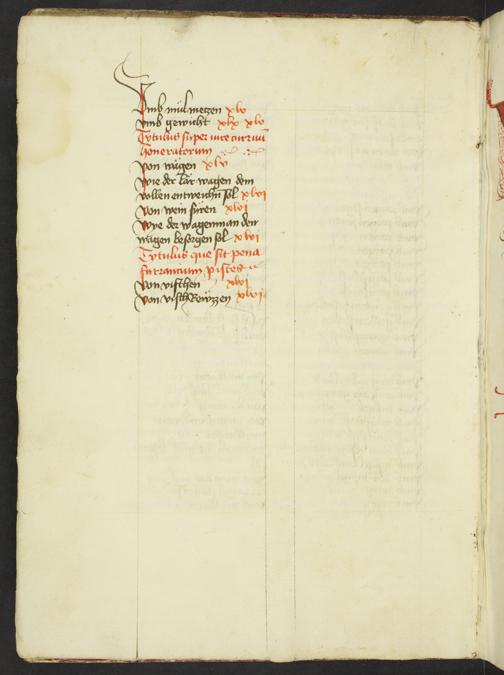 Umb mül metzen xlv
vmb gewicht xlv xlv
Tytulus super iure curruu
honeratorum
von wägen xlv
Wie der lär wagen dem
vollen entweichn sol xlvi
von wein füren xlvi
Wye der wagenman den
wagen besorgen sol xlvi
Tytulus que sit pena
furantium pisces
von vischen xlvi
von visch xlvi